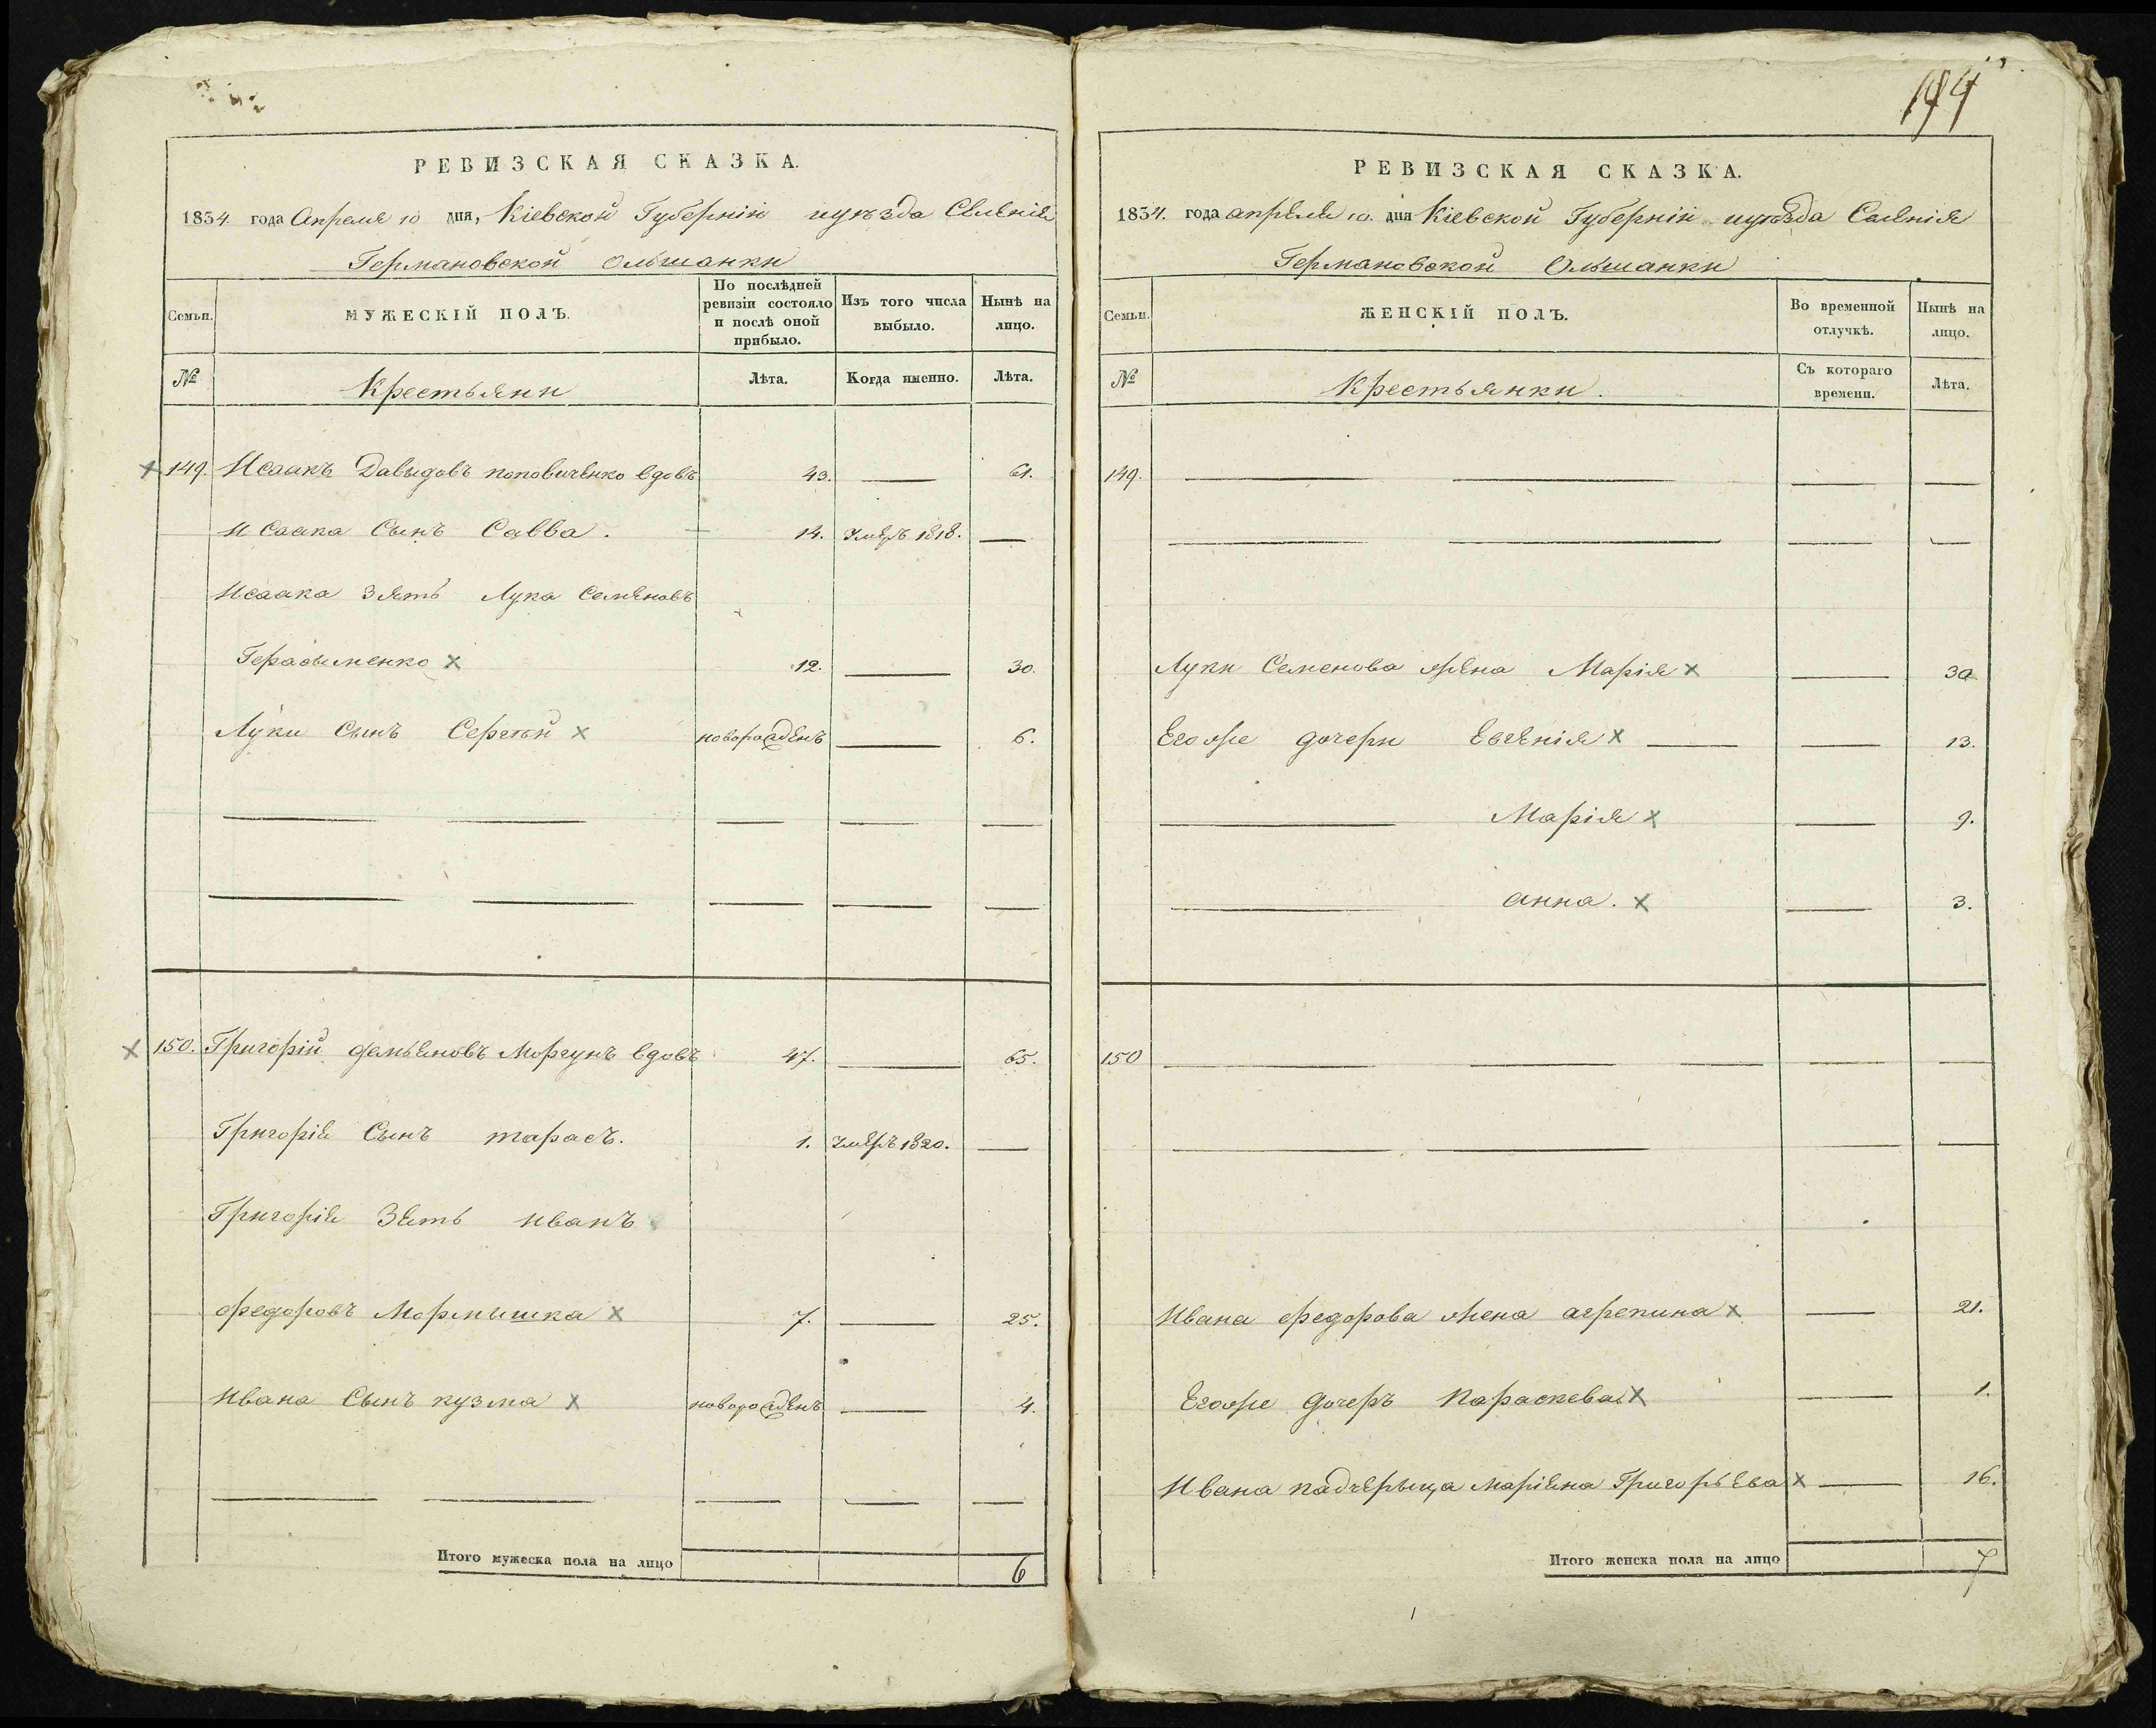 РЕВИЗСКАЯ СКАЗКА.
1834. года Апреля 10 дня, Кіевской Губерніи и уѣзда Селенія
Германовской Ольшанки
Семьи.
МУЖЕСКІЙ ПОЛЪ.
По послѣдней ревизіи состояло и послѣ оной прибыло.
Изъ того числа выбыло.
Нынѣ на лицо.
№
Крестьяни
Лѣта.
Когда именно.
Лѣта.
149. Исаакъ Давыдовъ поповиченко вдовъ 43. 61.
Исаака Сынъ Савва. 14. Умеръ 1818.
Исаака Зять Лука Семеновъ
Герасименко 12. 30.
Луки Сынъ Сергѣй новорожденъ 6.
150. Григорій демьяновъ Моргунъ вдовъ 47. 65.
Григорія Сынъ тарасъ. 1. Умеръ 1820.
Григорія Зять иванъ
федоровъ Мормышка 7. 25.
Ивана Сынъ кузма новорожденъ 4.
Итого мужеска пола на лицо 6
194
РЕВИЗСКАЯ СКАЗКА.
1834. года апреля 10. дня Кіевской Губерніи и уѣзда Селенія
Германовской Ольшанки
Семьи.
ЖЕНСКІЙ ПОЛЪ.
Во временной отлучкѣ.
Нынѣ на лицо.
№
Крестьянки.
Съ котораго времени.
Лѣта.
149.
Луки Семенова жена Марія 30
Егоже дочери Евгенія 13.
Марія 9.
анна. 3.
150
Ивана федорова жена агрепина 21.
Егоже дочеръ Параскева 1.
Ивана падчерыца маріяна Григорьева 16.
Итого женска пола на лицо 7